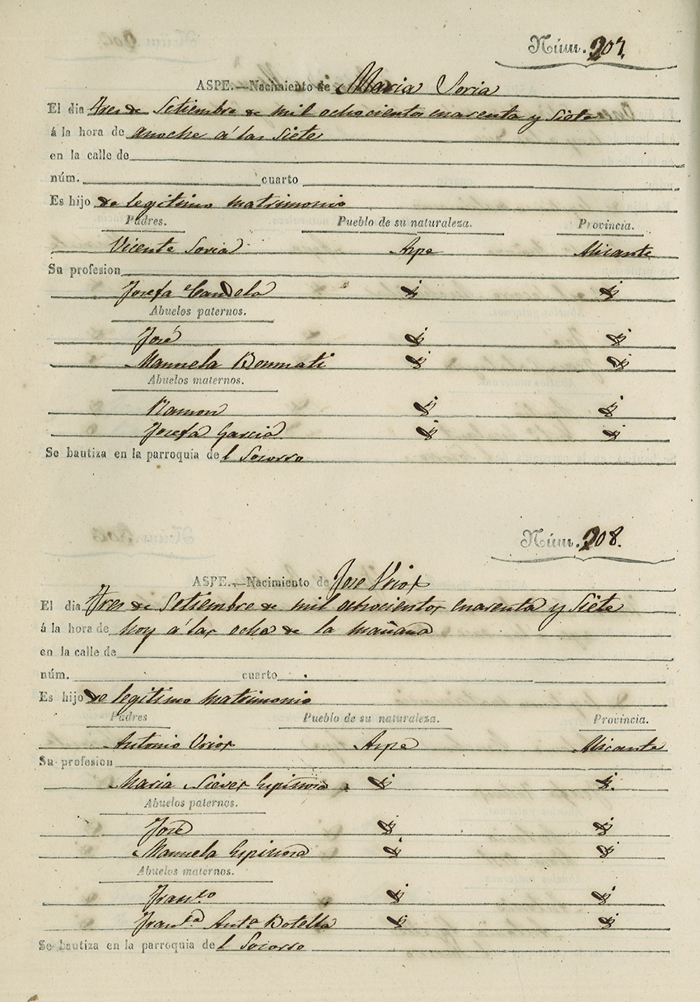 Núm. 207.
ASPE.—Nacimiento de Maria Soria
El dia tres de Setiembre de mil ochocientos cuarenta y Siete
á la hora de anoche á las Siete
en la calle de
núm. cuarto
Es hijo de legitimo matrimonio
Padres. Pueblo de su naturaleza. Provincia.
Vicente Soria Aspe Alicante
Su profesion
Josefa Candela id id
Abuelos paternos.
José id id
Manuela Bonmati id id
Abuelos maternos.
Ramon id id
Josefa Garcia id id
Se bautiza en la parroquia del Socorro
Núm. 208.
ASPE.—Nacimiento de Jose Urios
El dia tres de Setiembre de mil ochocientos cuarenta y Siete
á la hora de hoy á las ocho de la mañana
en la calle de
núm. cuarto
Es hijo de legitimo matrimonio
Padres Pueblo de su naturaleza. Provincia.
Antonio Urios Aspe Alicante
Su profesion
Maria Nieves Espinosa id id
Abuelos paternos.
José id id
Manuela Espinosa id id
Abuelos maternos.
Franco id id
Franca Anta Botella id id
Se bautiza en la parroquia del Socorro